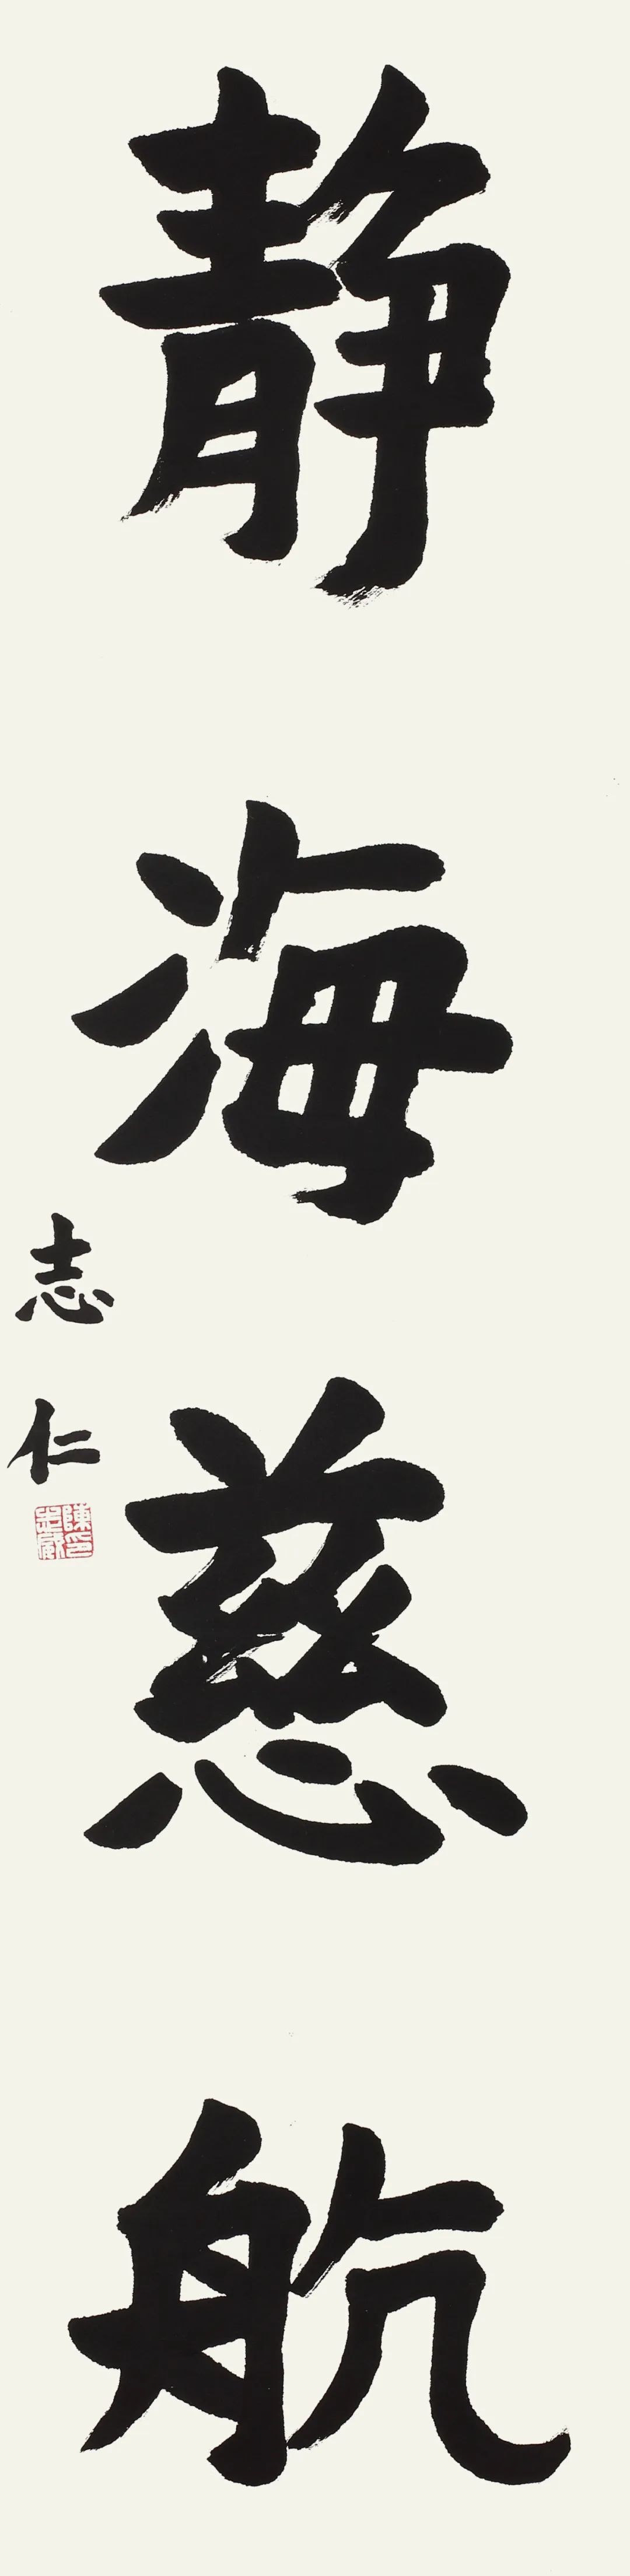 静海慈航
志仁